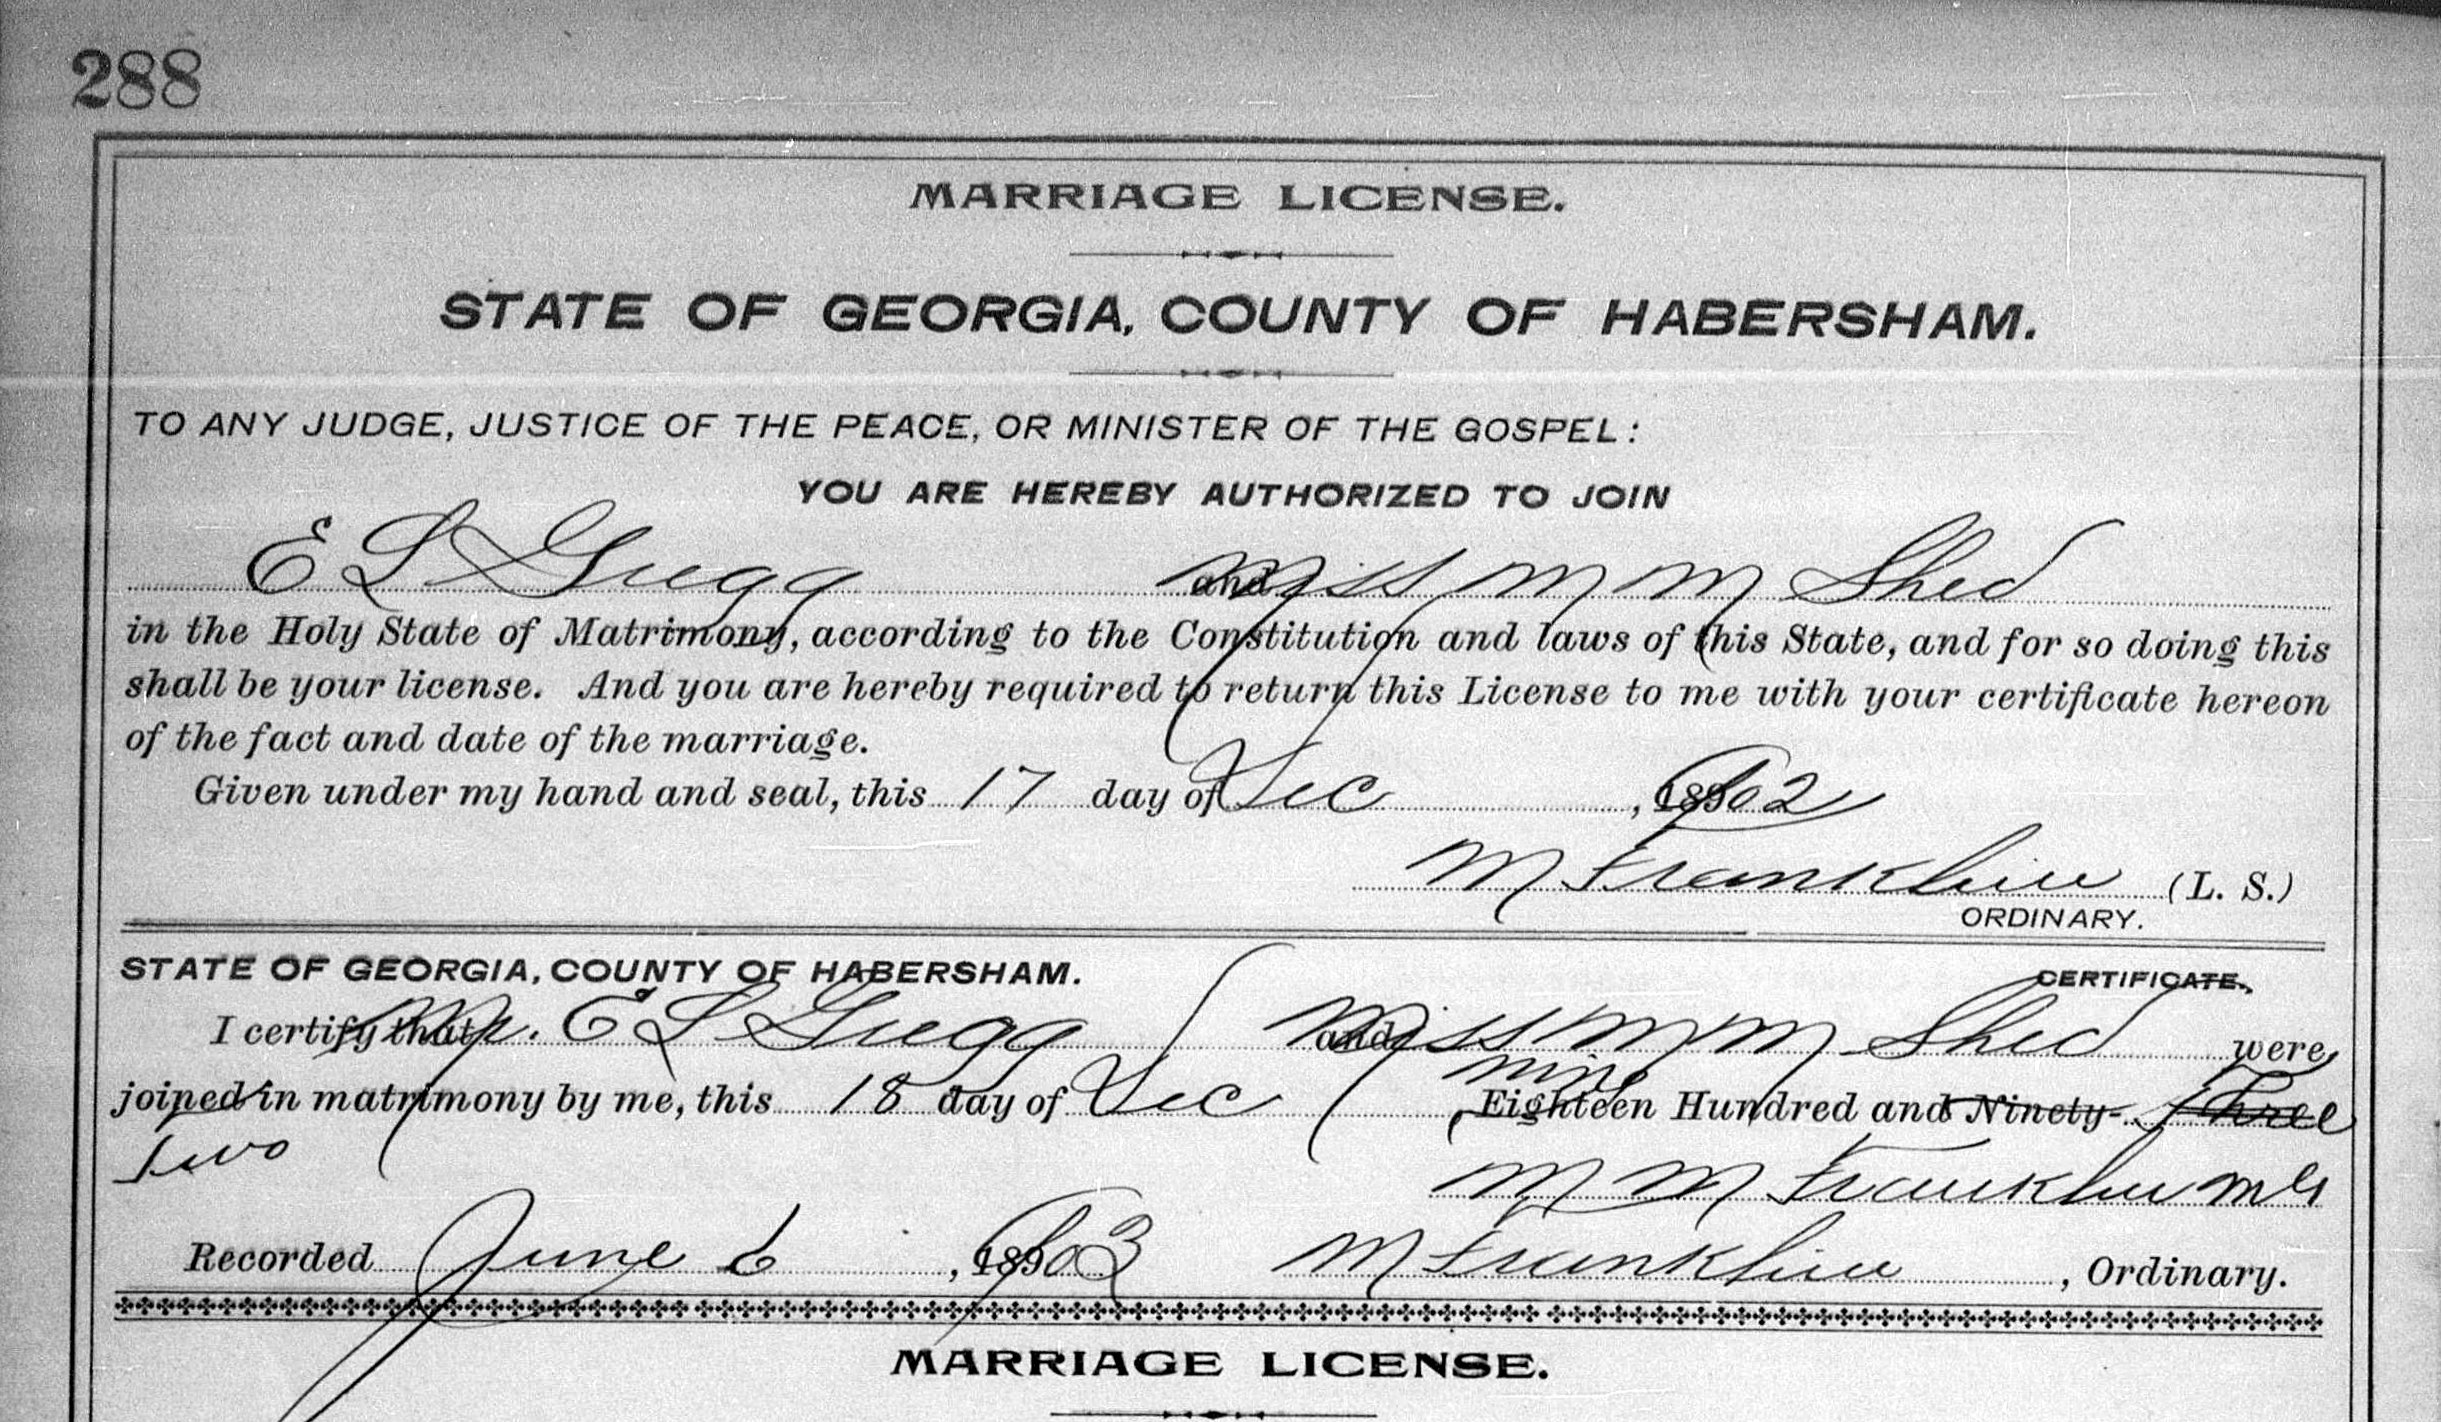 288
MARRIAGE LICENSE.
STATE OF GEORGIA, COUNTY OF HABERSHAM.
TO ANY JUDGE, JUSTICE OF THE PEACE, OR MINISTER OF THE GOSPEL:
YOU ARE HEREBY AUTHORIZED TO JOIN
E L Gregg and Miss M M Shed
in the Holy State of Matrimony, according to the Constitution and laws of this State, and for so doing this
shall be your license. And you are hereby required to return this License to me with your certificate hereon
of the fact and date of the marriage.
Given under my hand and seal, this 17 day of Dec , 1902
M Franklin (L. S.)
ORDINARY.
STATE OF GEORGIA, COUNTY OF HABERSHAM. CERTIFICATE.
I certify that Mr. E L Gregg and Miss M M Shed were
joined in matrimony by me, this 18 day of Dec Nine Eighteen Hundred and Ninety- Three
Two
M M Franklin MG
Recorded June 6 , 1903 M Franklin , Ordinary.
MARRIAGE LICENSE.